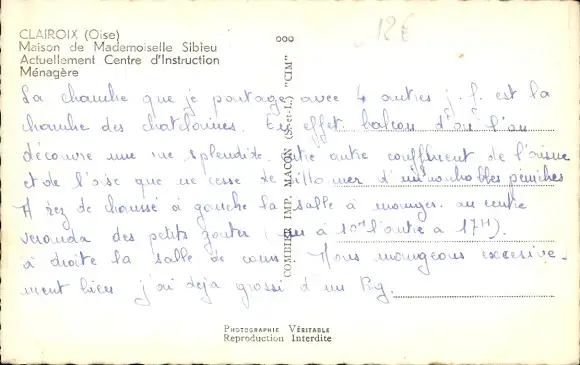 CLAIROIX (Oise)
Maison de Mademoiselle Sibieu
Actuellement Centre d'Instruction
Ménagère
ooo
18€
COMBIER IMP. MACON (S.-et-L.) "CIM"
La chambre que je partage avec 4 autres j.f. est la
chambre des chatelaines. En effet balcon d'où l'on
découvre une vue splendide. entre autre confluent de l'aisne
et de l'oise que ne cesse de sillonner d'innombrables péniches
A rez de chaussé à gauche la salle à manger. au centre
veranda des petits gouter ( à 10H l'autre à 17H).
à droite la salle de cours. Nous mangeons excessive-
ment bien j'ai déja grossi d'un Kg.
PHOTOGRAPHIE VÉRITABLE
Reproduction Interdite